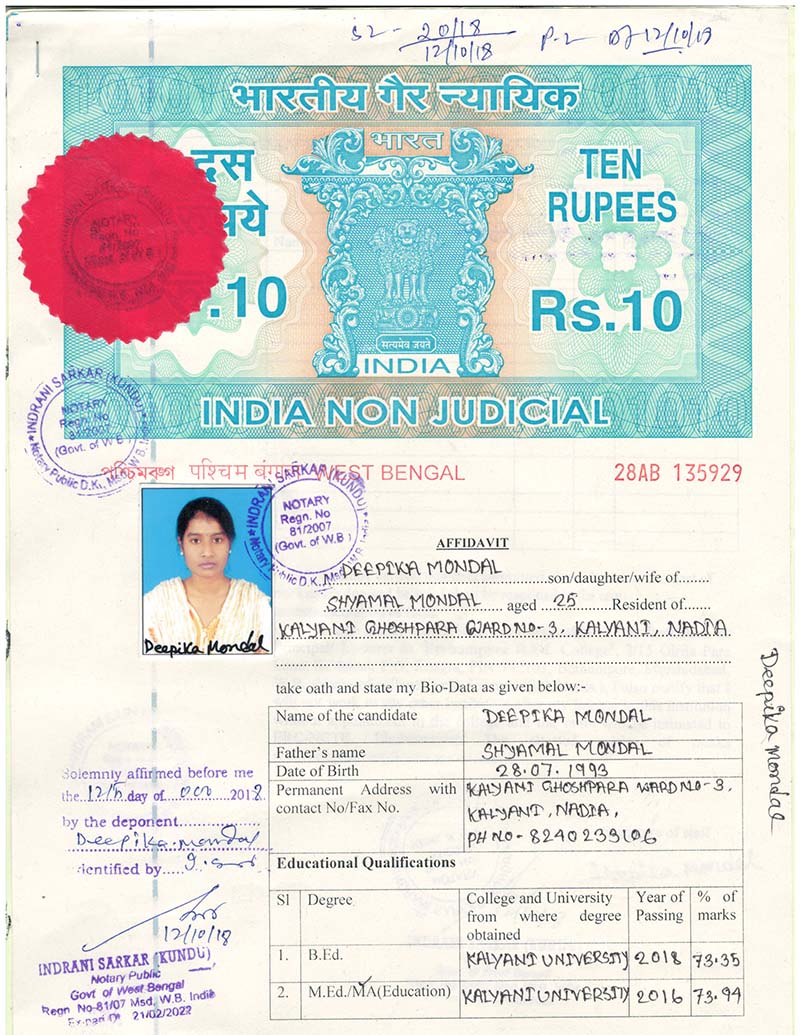 SL - 20/18
12/10/18
P-2
12/10/19
भारतीय गैर न्यायिक
भारत
दस
TEN
RUPEES
.10
Rs.10
सत्यमेव जयते
INDIA
INDIA NON JUDICIAL
NOTARY
Regn. No
81/2007
(Govt. of W.B.)
INDRANI SARKAR (KUNDU)
NOTARY
Regn. No
81/2007
(Govt. of W.B.)
Notary Public D.K., Msd. W.B. India
পশ্চিমবঙ্গ पश्चिम बंगाल WEST BENGAL
28AB 135929
INDRANI SARKAR (KUNDU)
NOTARY
Regn. No
81/2007
(Govt. of W.B)
Deepika Mondal
AFFIDAVIT
DEEPIKA MONDAL son/daughter/wife of
SHYAMAL MONDAL aged 25 Resident of
KALYANI GHOSHPARA WARD NO-3, KALYANI, NADIA
take oath and state my Bio-Data as given below:-
Name of the candidate DEEPIKA MONDAL
Father's name SHYAMAL MONDAL
Date of Birth 28.07.1993
Permanent Address with contact No/Fax No. KALYANI GHOSHPARA WARD NO-3,
KALYANI, NADIA,
PH NO- 8240239106
Educational Qualifications
Sl Degree College and University from where degree obtained Year of Passing % of marks
1. B.Ed. KALYANI UNIVERSITY 2018 73.35
2. M.Ed./MA(Education) KALYANI UNIVERSITY 2016 73.94
Deepika Mondal
Solemnly affirmed before me
the 12th day of 2018
by the deponent
Deepika mondal
identified by
12/10/18
INDRANI SARKAR (KUNDU)
Notary Public
Govt of West Bengal
Regn No-81/07 Msd, W.B. India
21/02/2022